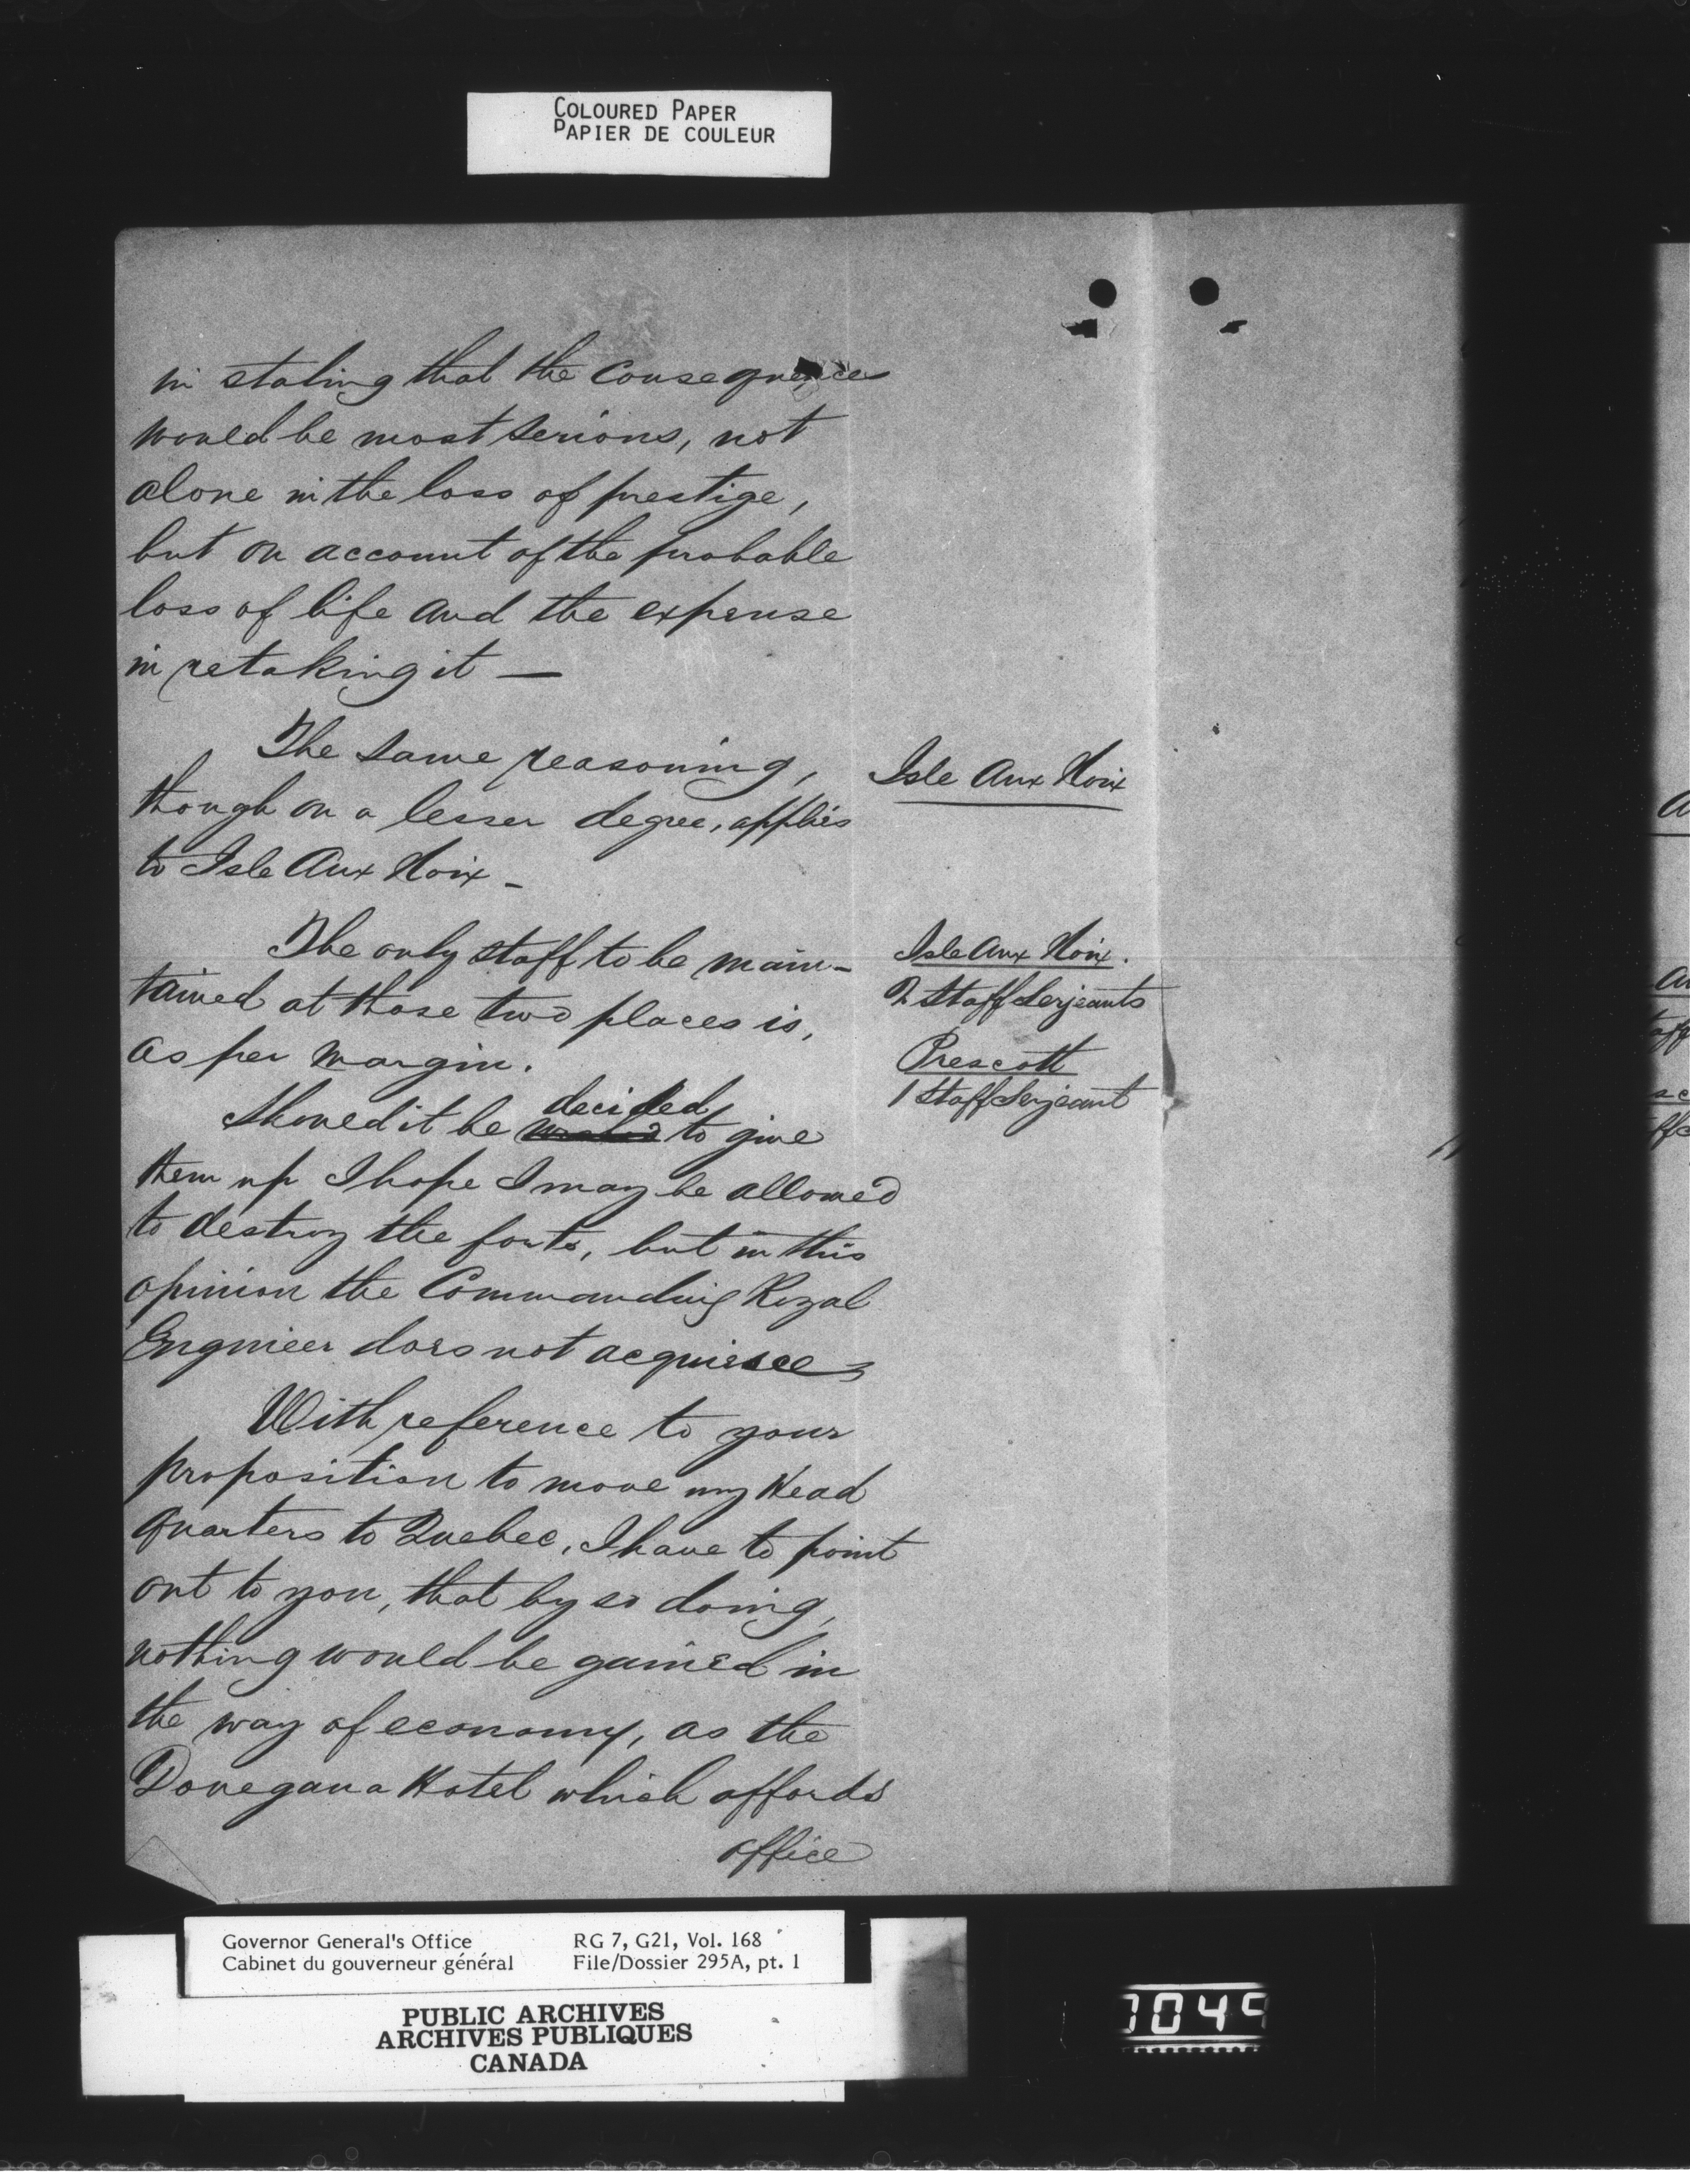 COLOURED PAPER
PAPIER DE COULEUR
in stating that the consequences
would be most serious, not
alone in the loss of prestige,
but on account of the probable
loss of life and the expense
in retaking it —
The same reasoning,
though on a lesser degree, applies
to Isle Aux Noix -
Isle Aux Noix
The only staff to be main-
tained at those two places is,
as per margin.
Isle Aux Noix.
2 Staff Serjeants
Prescott
1 Staff Serjeant
decided
Should it be to give
them up I hope I may be allowed
to destroy the forts, but in this
opinion the Commanding Royal
Engineer does not acquiesce
With reference to your
proposition to move my Head
Quarters to Quebec, I have to point
out to you, that by so doing,
nothing would be gained in
the way of economy, as the
Donegana Hotel which affords
office
Governor General's Office
Cabinet du gouverneur général
RG 7, G21, Vol. 168
File/Dossier 295A, pt. 1
PUBLIC ARCHIVES
ARCHIVES PUBLIQUES
CANADA